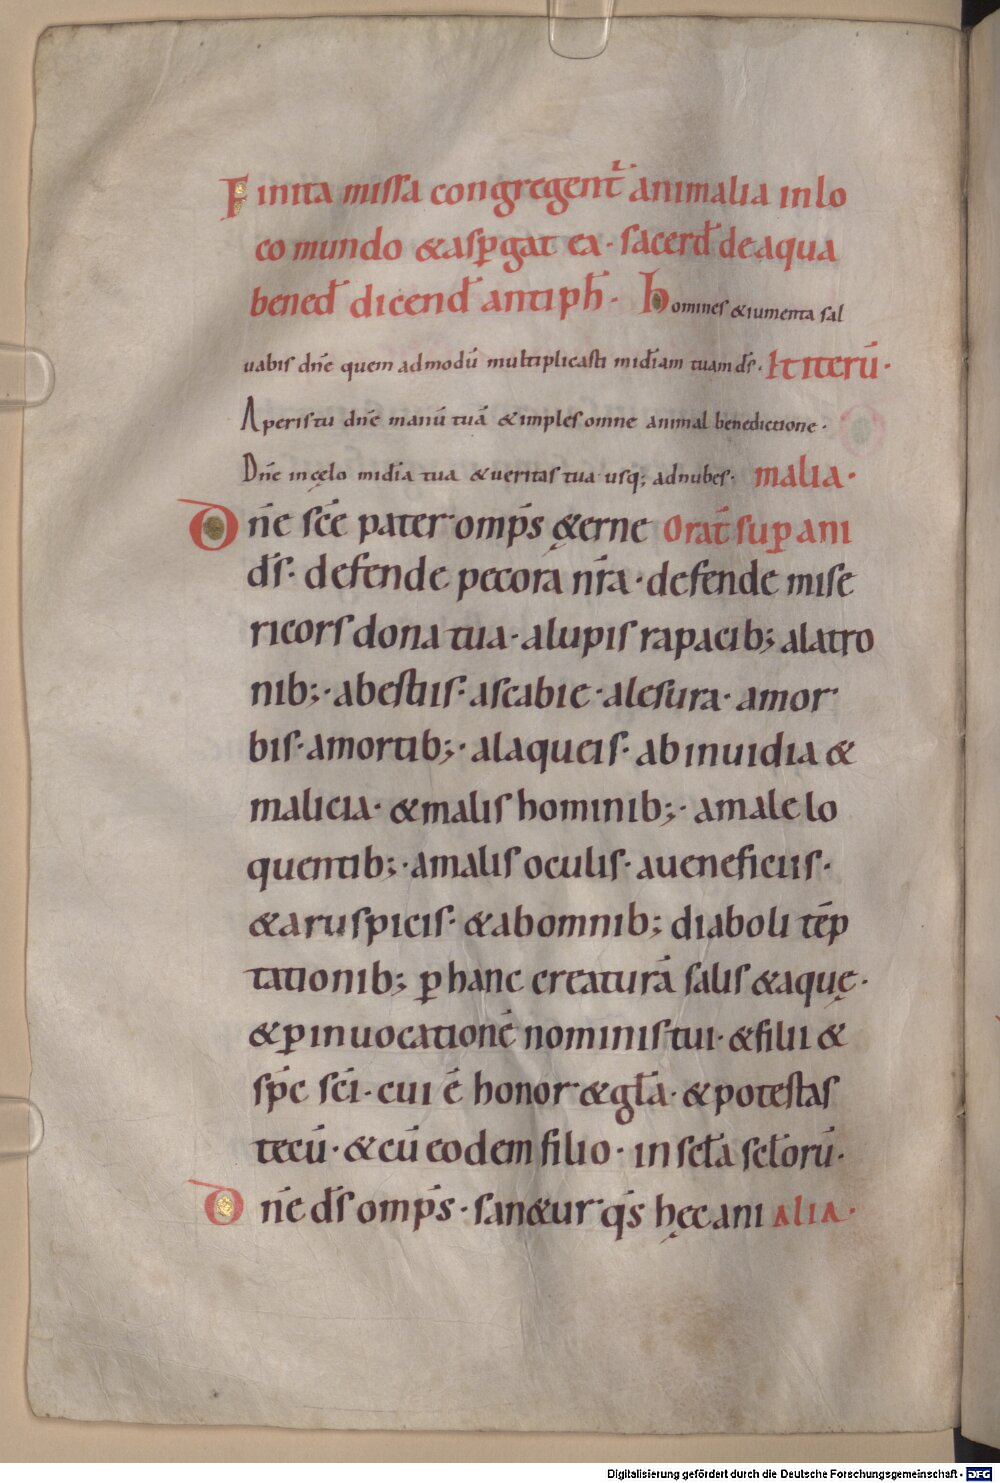 Finita missa congregent̄ animalia inlo
co mundo &asꝑgat ea· sacerd̄ deaqua
bened̄ dicend̄ antiph̄· Homines &iumenta sal
uabis dn̄e quem admodū multiplicasti mid̄iam tuam ds̄· Et iterū·
Aperis tu dn̄e manū tuā &imples omne animal benedictione·
Dn̄e in cęlo mid̄ia tua &ueritas tua usq; adnubes· malia·
Dn̄e sc̄e pater omp̄s &̨erne Orat̄ suꝑ ani
ds̄· defende pecora nr̄a· defende mise
ricors dona tua· alupis rapacib; alatro
nib;· abestiis· ascabie· alesura· amor
bis· amortib;· alaqueis· abinuidia &
malicia· &malis hominib;· amale lo
quentib;· amalis oculis· aueneficiis·
&aruspicis· &abomnib; diaboli tēp
tationib; ꝑ hanc creaturā salis &aquę·
&ꝑ inuocationē nominis tui· &filii &
sp̄c sc̄i· cui ē honor &gl̄a· &potestas
tecū· &cū eodem filio· in secl̄a secl̄orū·
Dn̄e ds̄ omp̄s· san&ur qs̄ hęc ani alia·
Digitalisierung gefördert durch die Deutsche Forschungsgemeinschaft - DFG